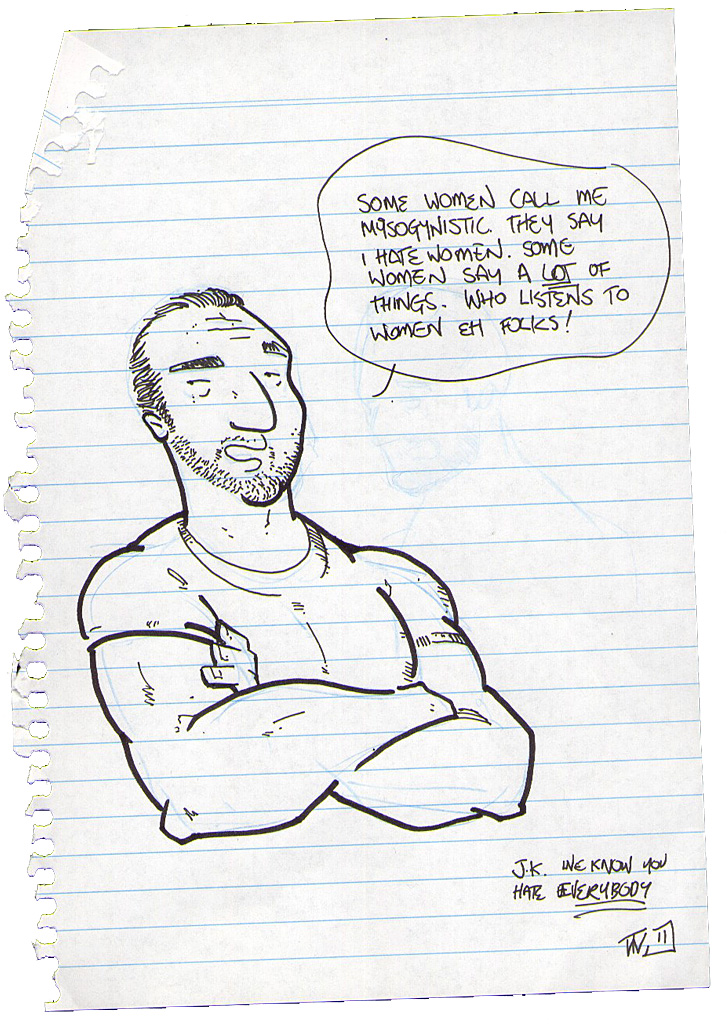 SOME WOMEN CALL ME
MYSOGYNISTIC. THEY SAY
I HATE WOMEN. SOME
WOMEN SAY A LOT OF
THINGS. WHO LISTENS TO
WOMEN EH FOLKS!
J.K. WE KNOW YOU
HATE EVERYBODY